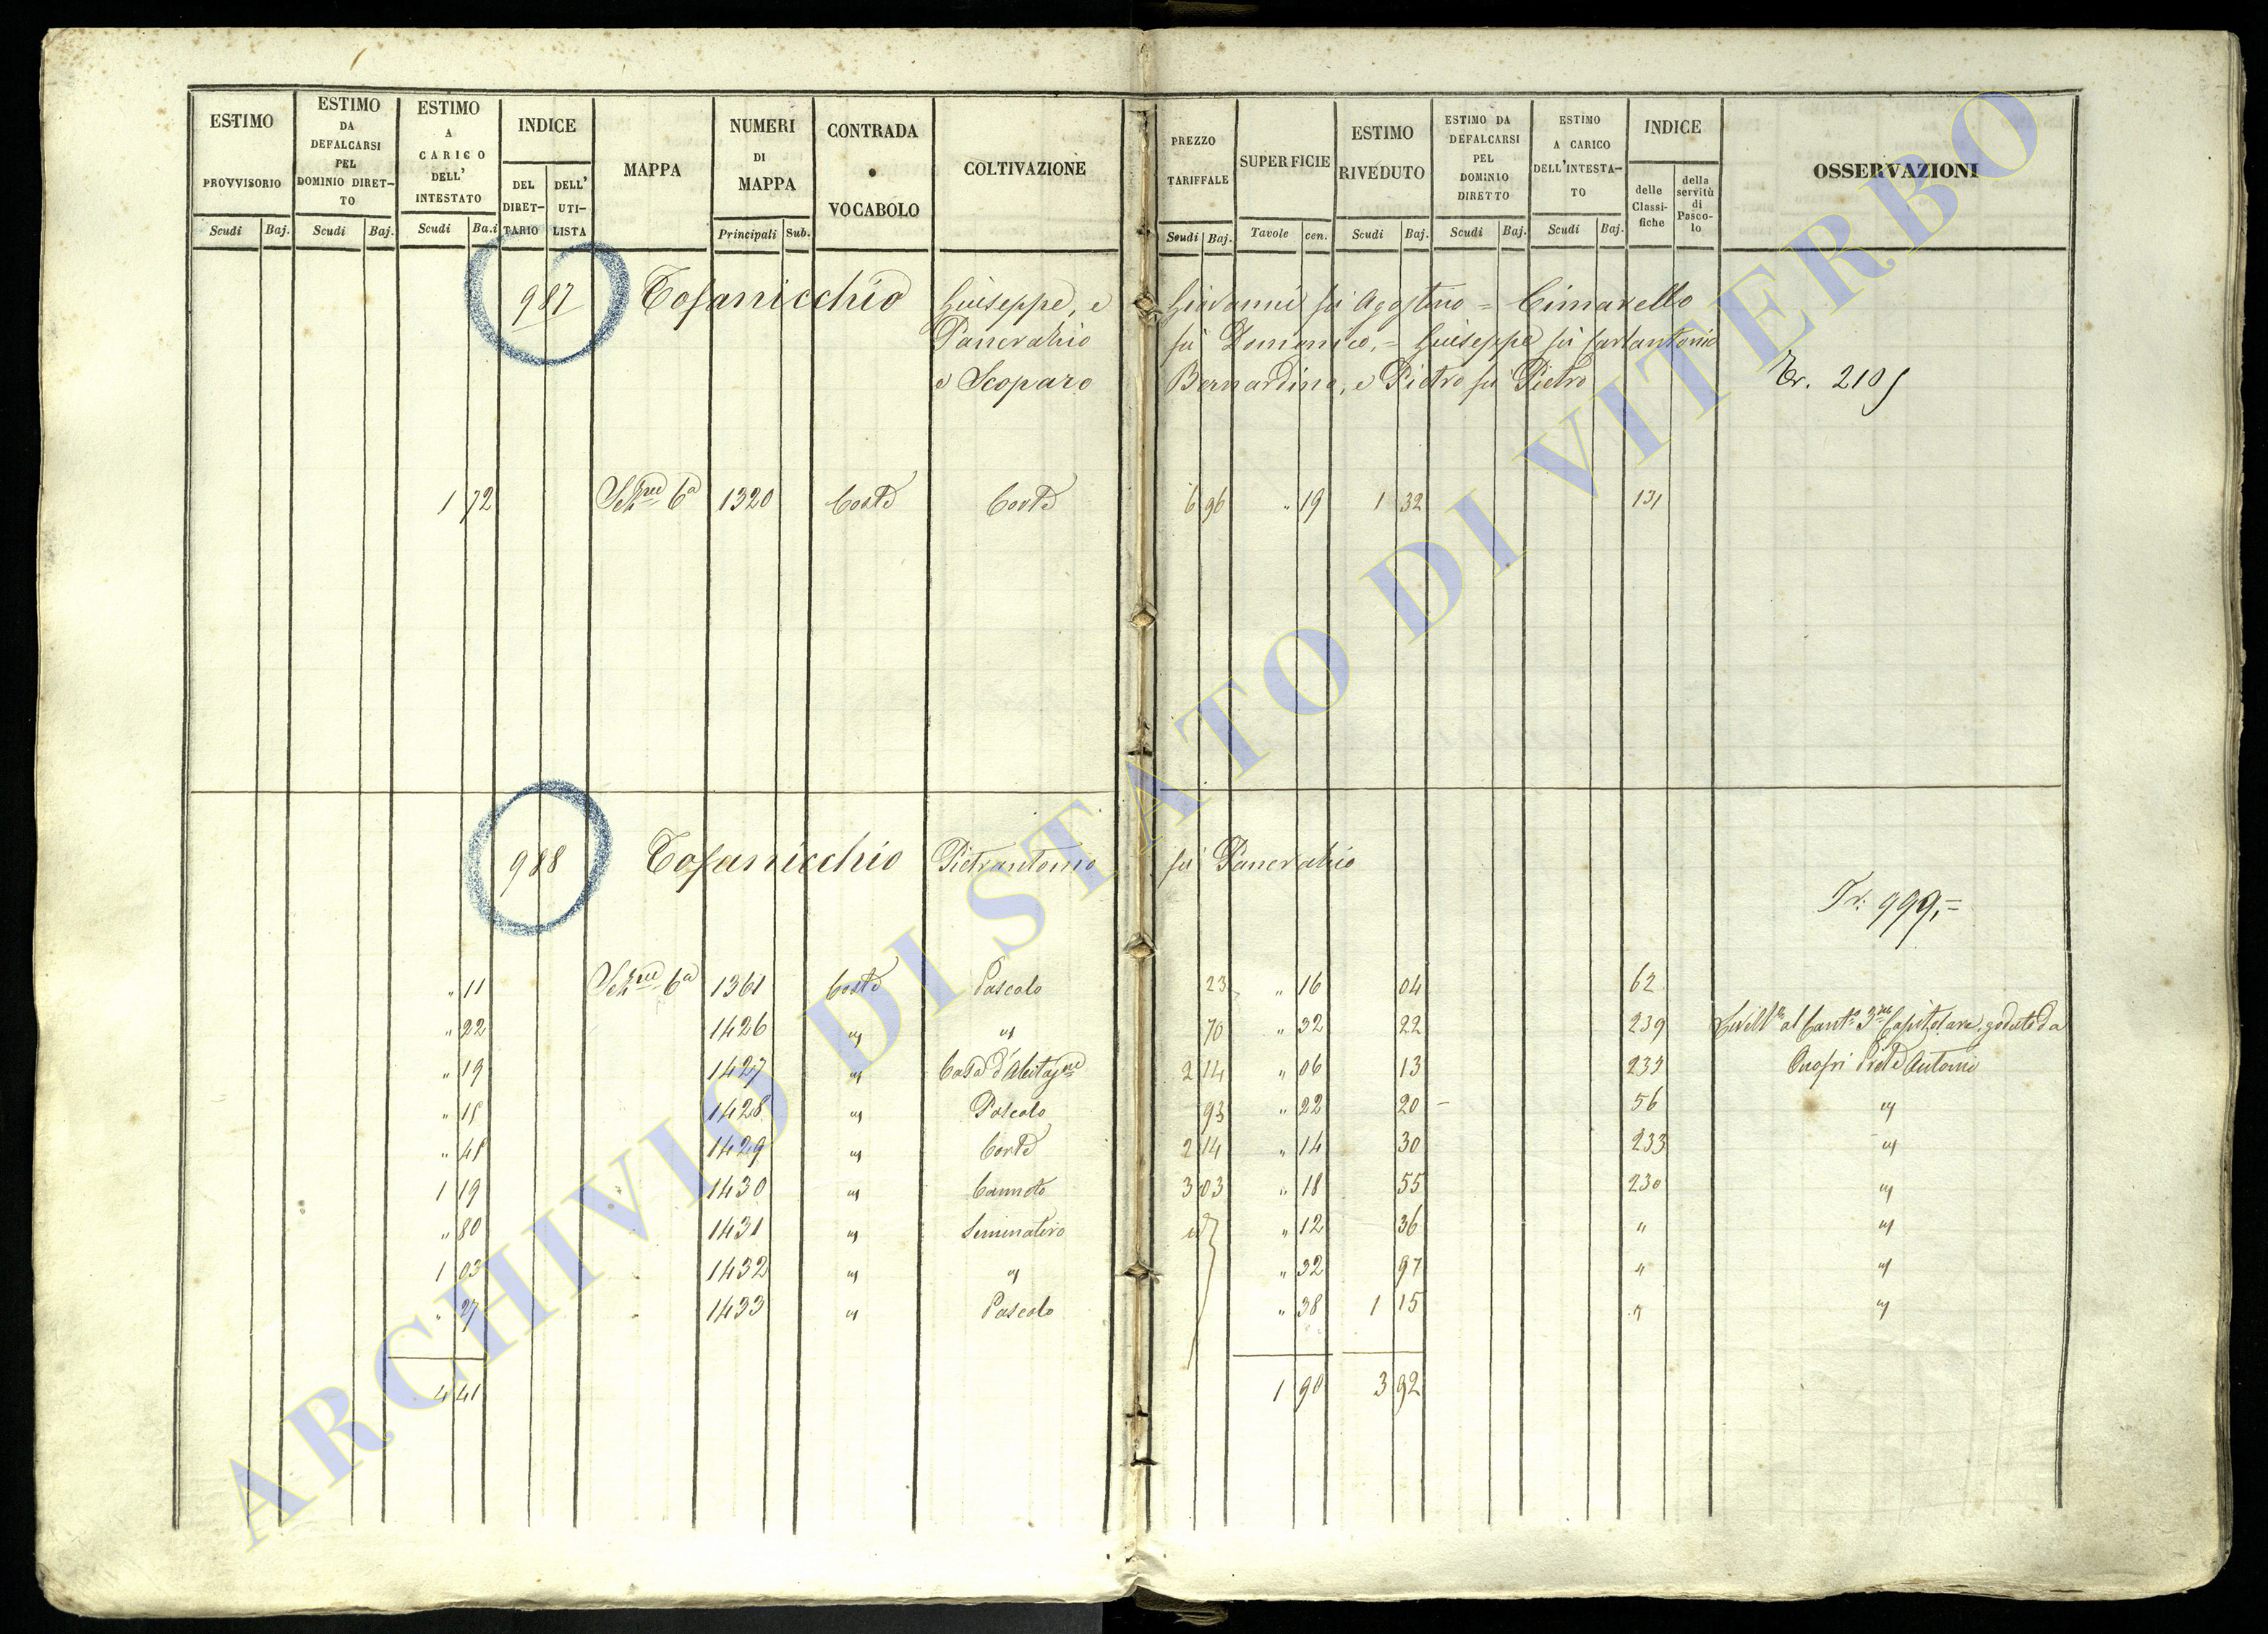 ESTIMO PROVVISORIO Scudi Baj.
ESTIMO DA DEFALCARSI PEL DOMINIO DIRET-TO Scudi Baj.
ESTIMO A CARICO DELL' INTESTATO Scudi Ba.i
INDICE DEL DIRET-TARIO DELL' UTI-LISTA
MAPPA
NUMERI DI MAPPA Principali Sub.
CONTRADA o VOCABOLO
COLTIVAZIONE
PREZZO TARIFFALE Scudi Baj.
SUPERFICIE Tavole cen.
ESTIMO RIVEDUTO Scudi Baj.
ESTIMO DA DEFALCARSI PEL DOMINIO DIRETTO Scudi Baj.
ESTIMO A CARICO DELL'INTESTA-TO Scudi Baj.
INDICE delle Classi-fiche della servitù di Pasco-lo
OSSERVAZIONI
987 Tofanicchio Giuseppe, e Giovanni fu Agostino = Cimarello
Pancrazio fu Domenico, = Giuseppe fu
e Scoparo Bernardino, e Pietro fu Pietro Tr. 2105
1 72 Sez.ne 6a 1320 Coste Corte 6 96 " 19 1 32 131
988 Tofanicchio Pietrantonio fu Pancrazio
Tr. 999,=
" 11 Sez.ne 6a 1361 Coste Pascolo 23 " 16 04 62
" 22 1426 " " 70 " 32 22 239 al Capitolare, goduto da
" 19 1427 " Casa d'Abitaz.ne 2 14 " 06 13 Antonio
" 18 1428 " Pascolo 93 " 22 20 56 "
" 48 1429 " Corte 2 14 " 14 30 233 "
1 19 1430 " Canneto 3 03 " 18 55 230 "
" 80 1431 " Seminativo " 12 36 " "
1 03 1432 " " " 32 97 " "
" 27 1433 " Pascolo " 38 1 15 " "
4 41 1 90 3 92
ARCHIVIO DI STATO DI VITERBO